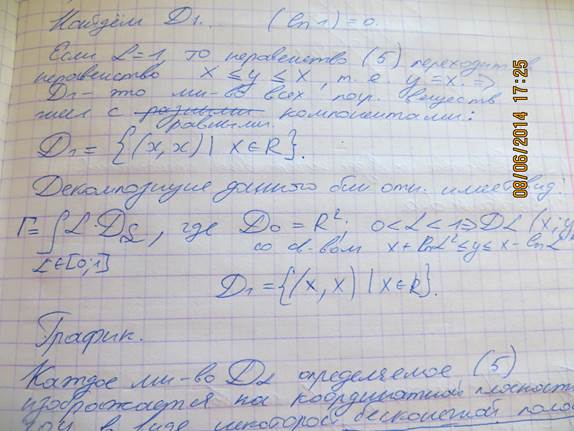 Найдём D₁. (ln 1) = 0.
Если L=1, то неравенство (5) переходит в
неравенство x ≤ y ≤ x, т.е. y = x. ⇒
D₁ - это мн-во всех пар. веществ
чисел с разными компонентами:
равными
D₁ = {(x, x) | x ∈ R}.
Декомпозиция данного бин. отн. имеет вид:
Γ = ∫ L·D_L, где D₀ = R²; 0<L<1 ⇒ DL (x;y
L∈[0;1] со св-вом x + ln L² ≤ y ≤ x - ln L
D₁ = {(x, x) | x ∈ R}.
График.
Каждое мн-во D_L определяемое (5)
изображается на координатной плоскости
в виде некоторой бесконечной поло
08/06/2014 17:25